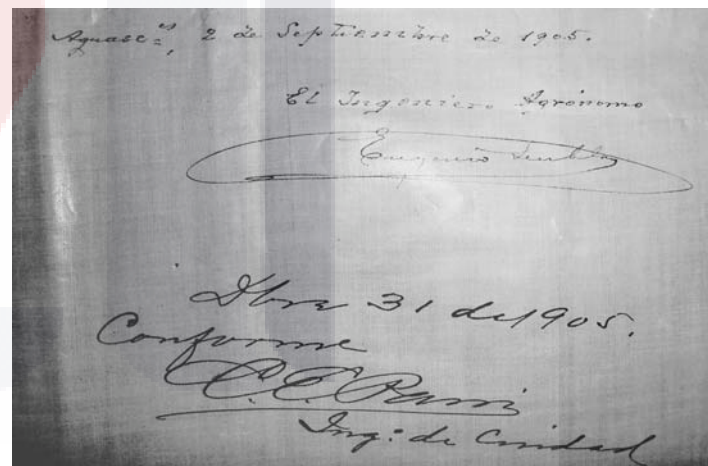 Aguasc.es, 2 de Septiembre de 1905.
El Ingeniero Agrónomo
Dbre 31 de 1905.
Conforme
Ing.º de Ciudad